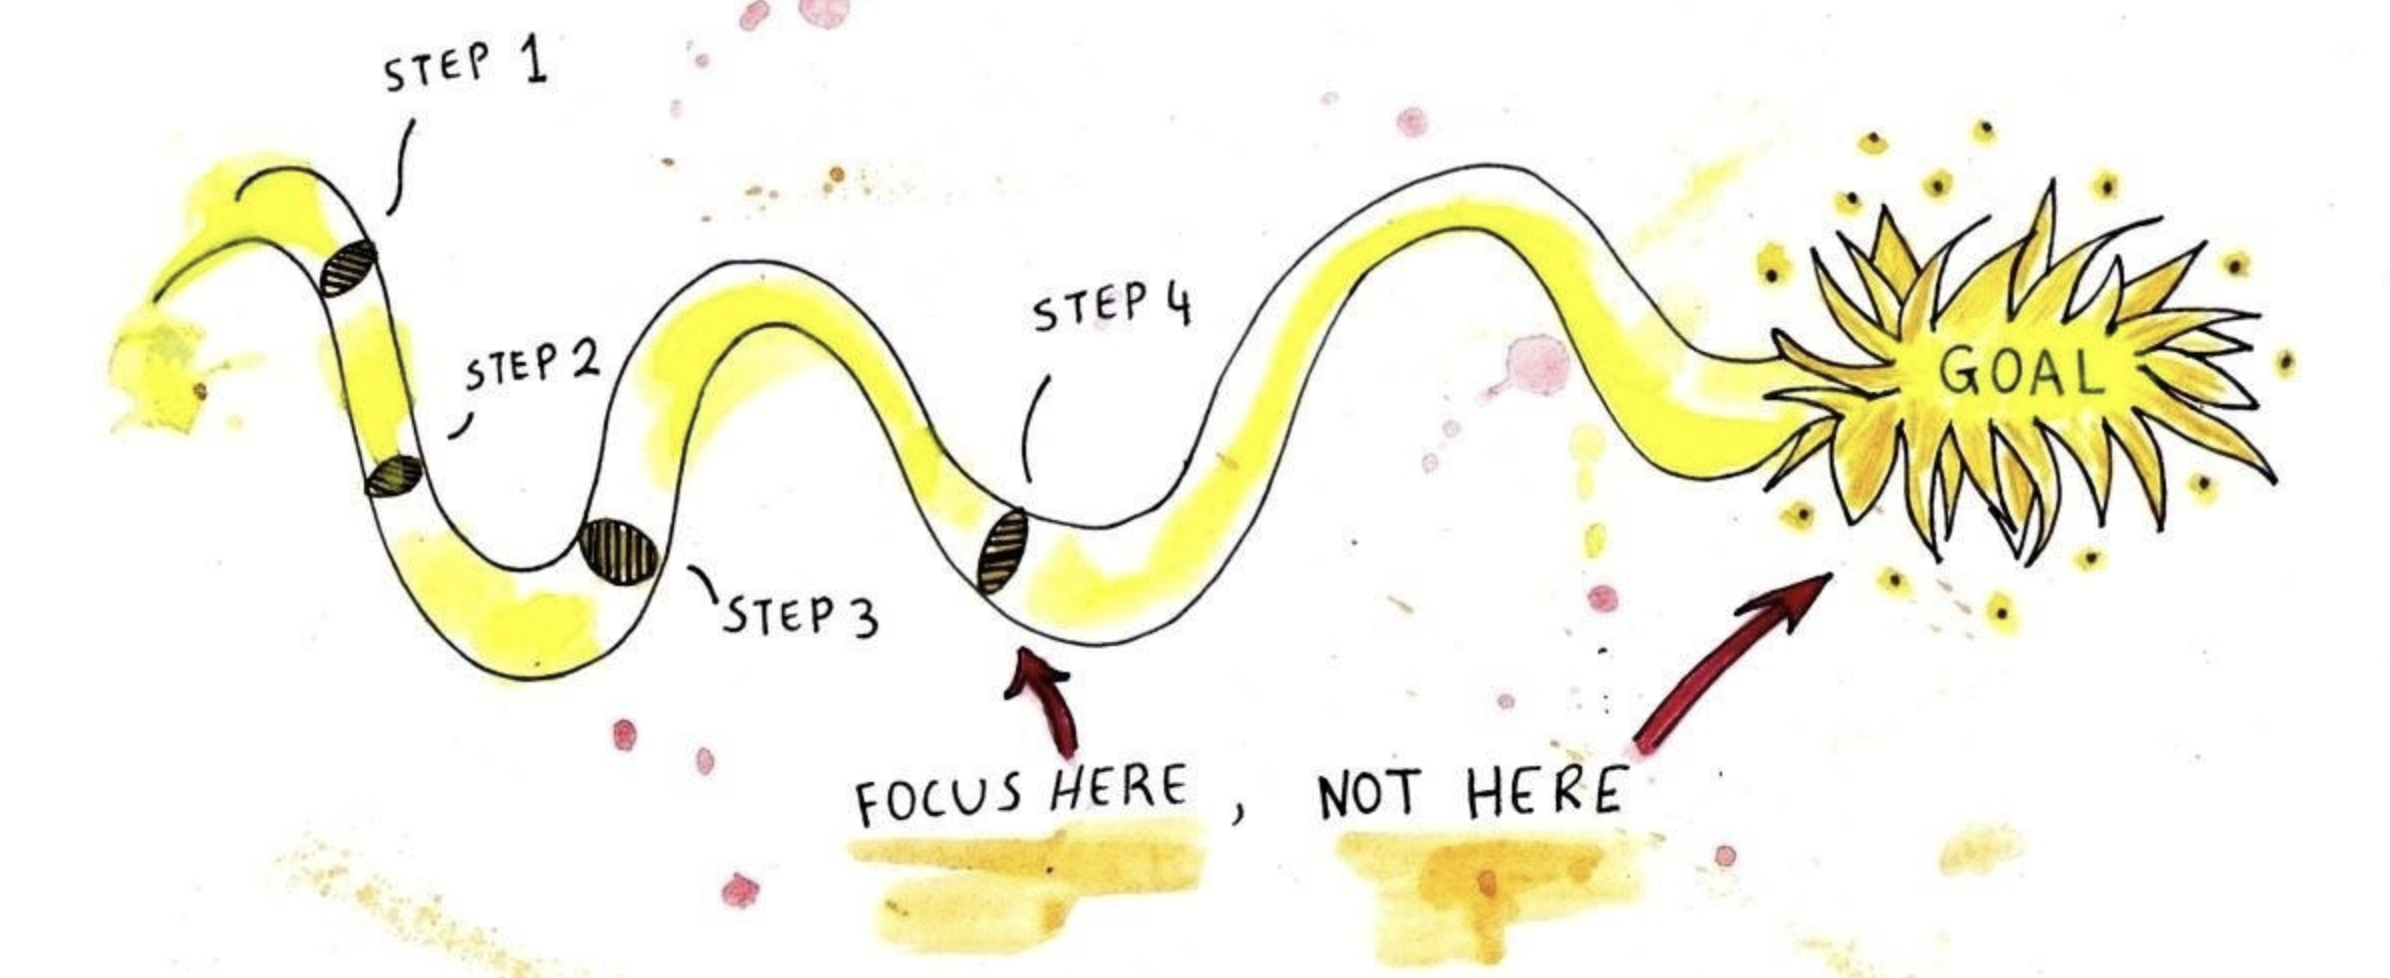 STEP 1
STEP 2
STEP 3
STEP 4
GOAL
FOCUS HERE, NOT HERE